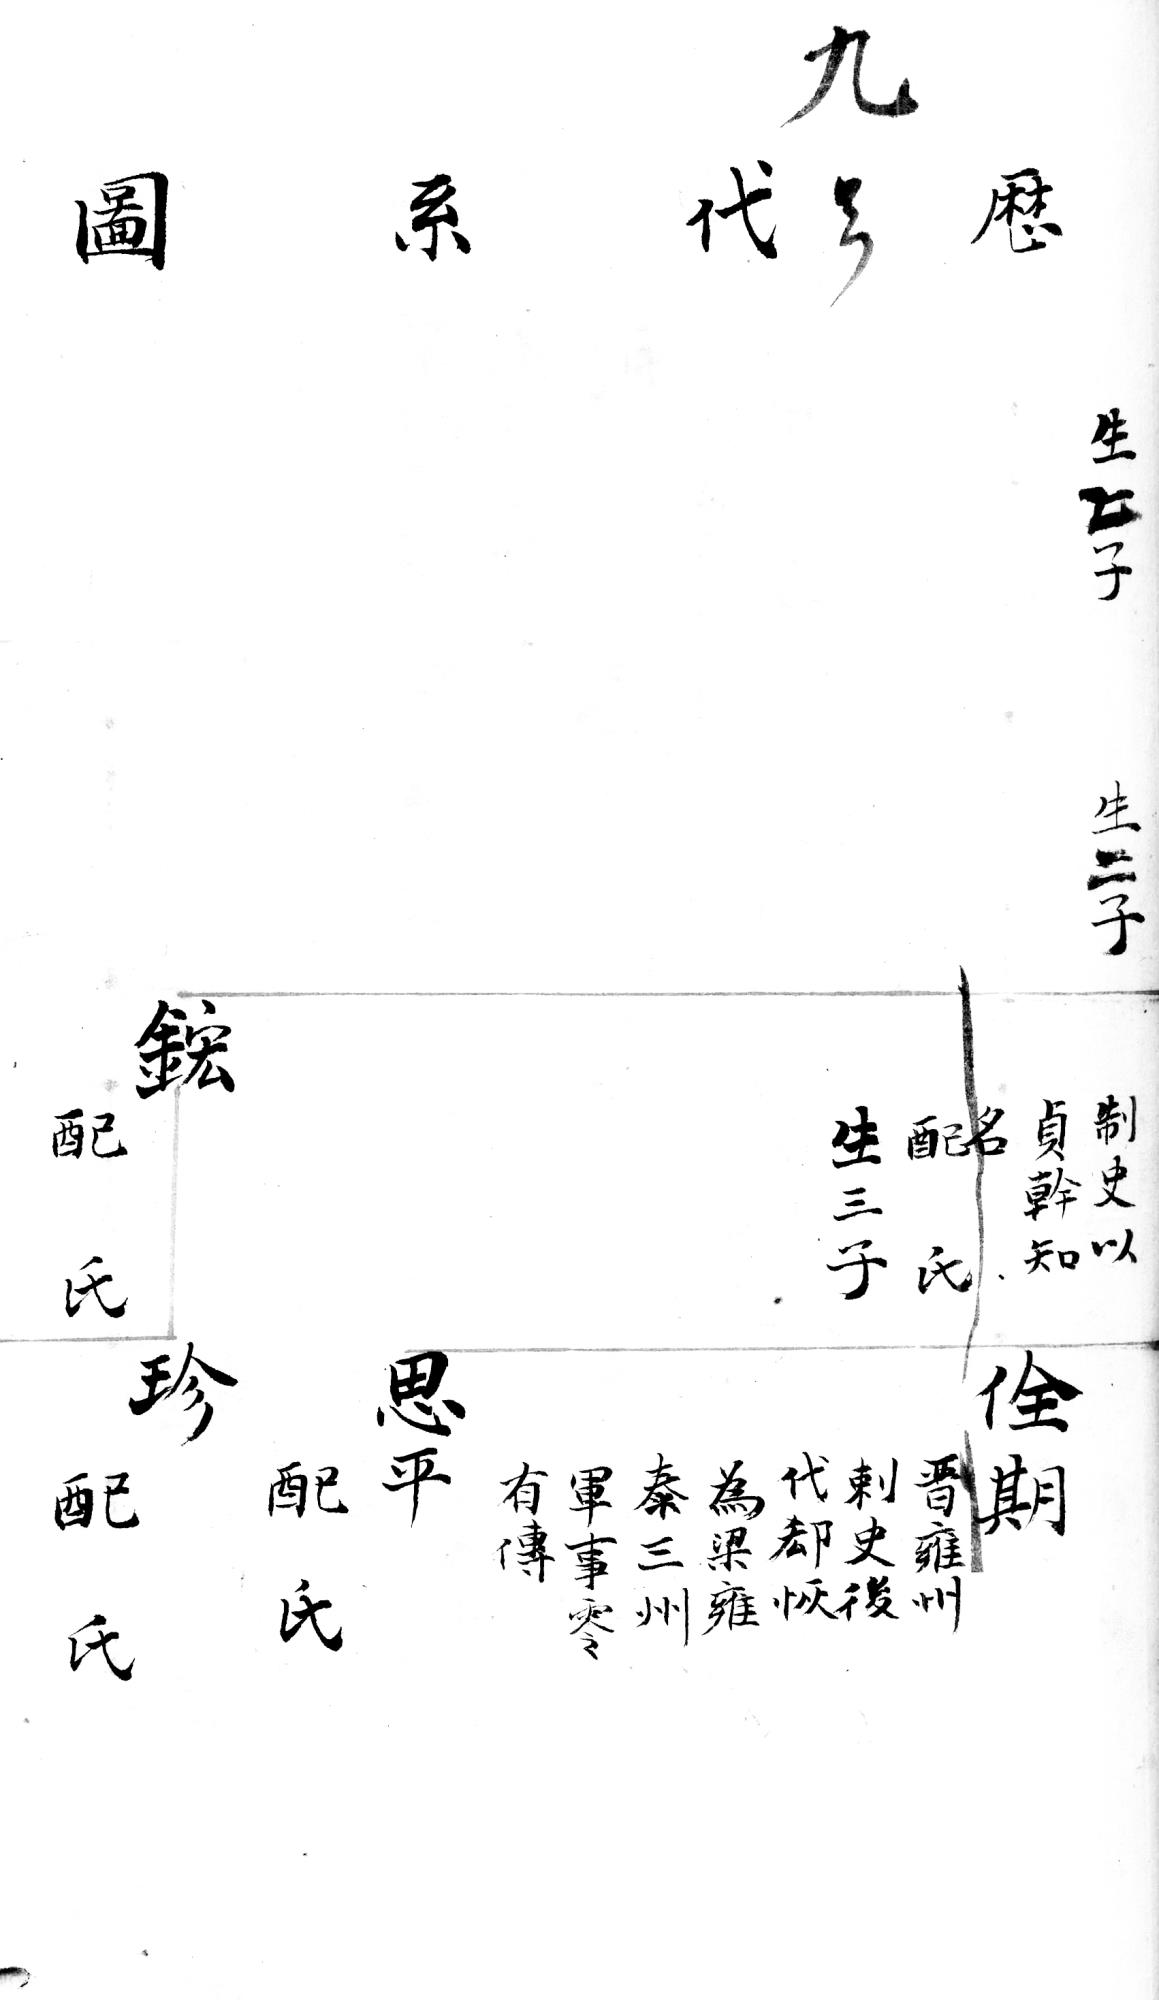 九号
歴代系圖
生七子
生二子
制史以
貞幹知
名
配氏
生三子
鋐
配氏
佺期
晋雍州
刺史後
代却恢
為梁雍
秦三州
軍事零
有傳
思平
配氏
珍
配氏